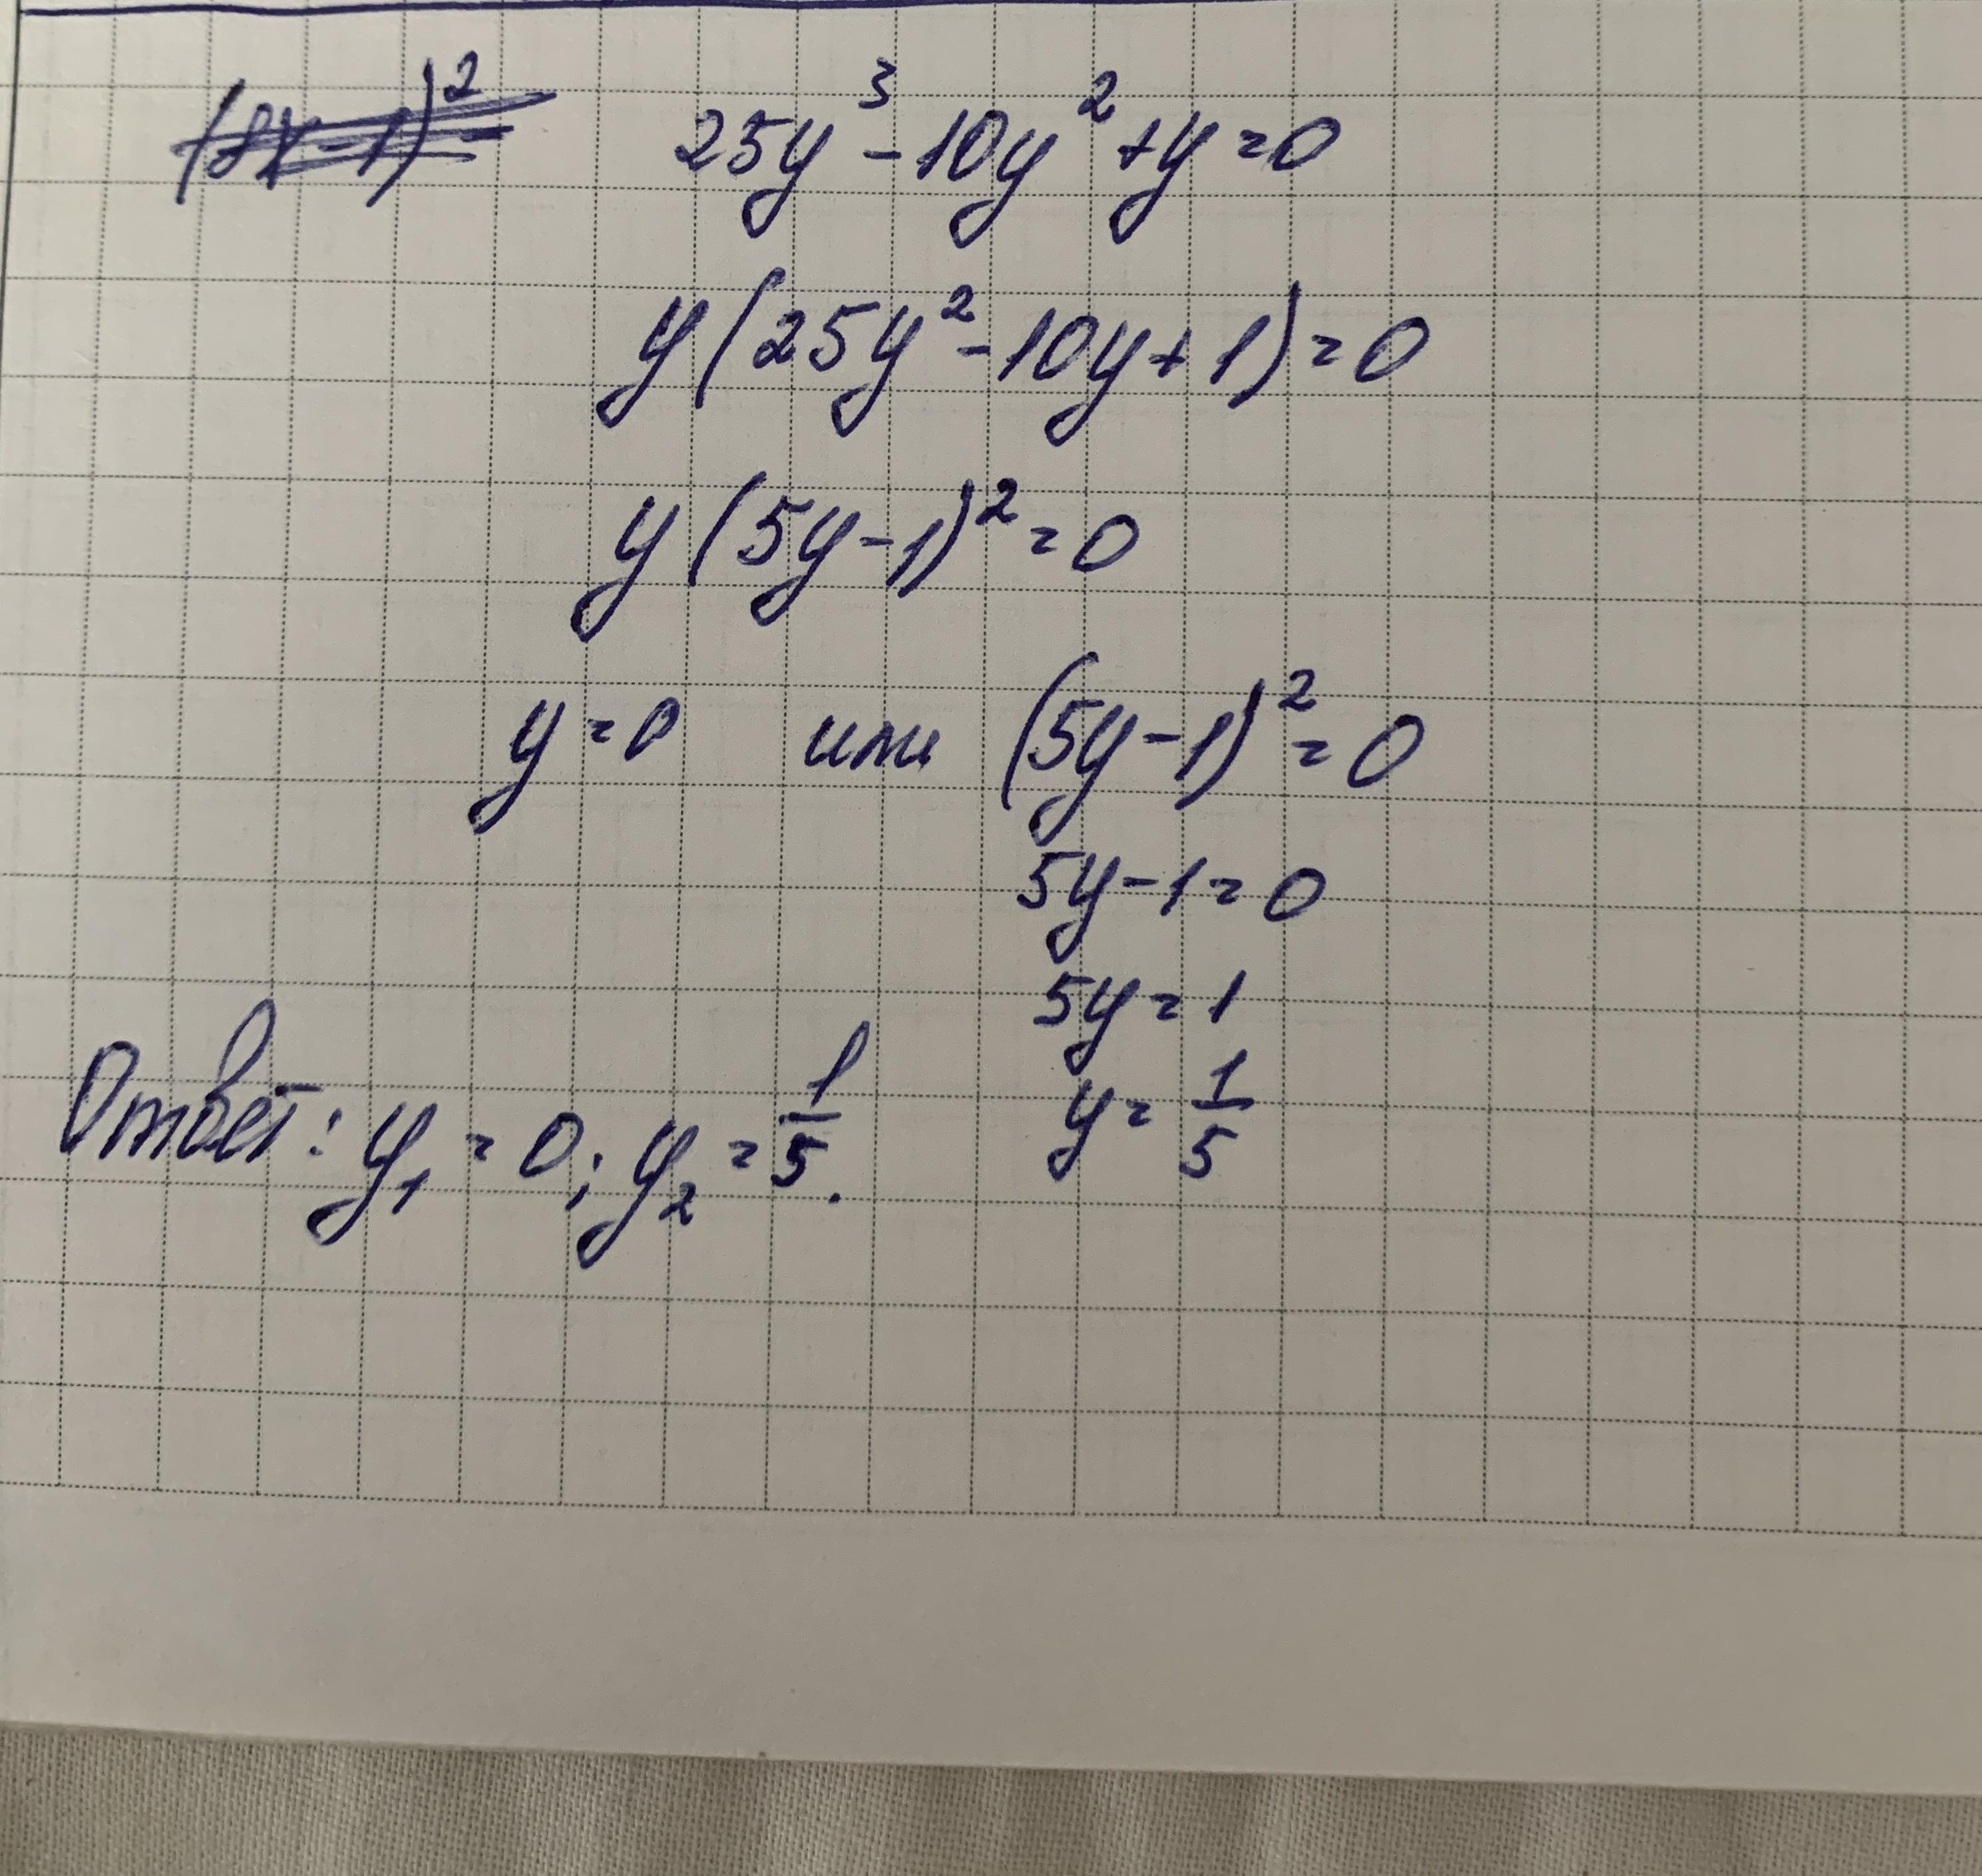 (8y-1)² 25y³-10y²+y=0
y(25y²-10y+1)=0
y(5y-1)²=0
y=0 или (5y-1)²=0
5y-1=0
5y=1
y=1/5
Ответ: y₁=0; y₂=1/5.